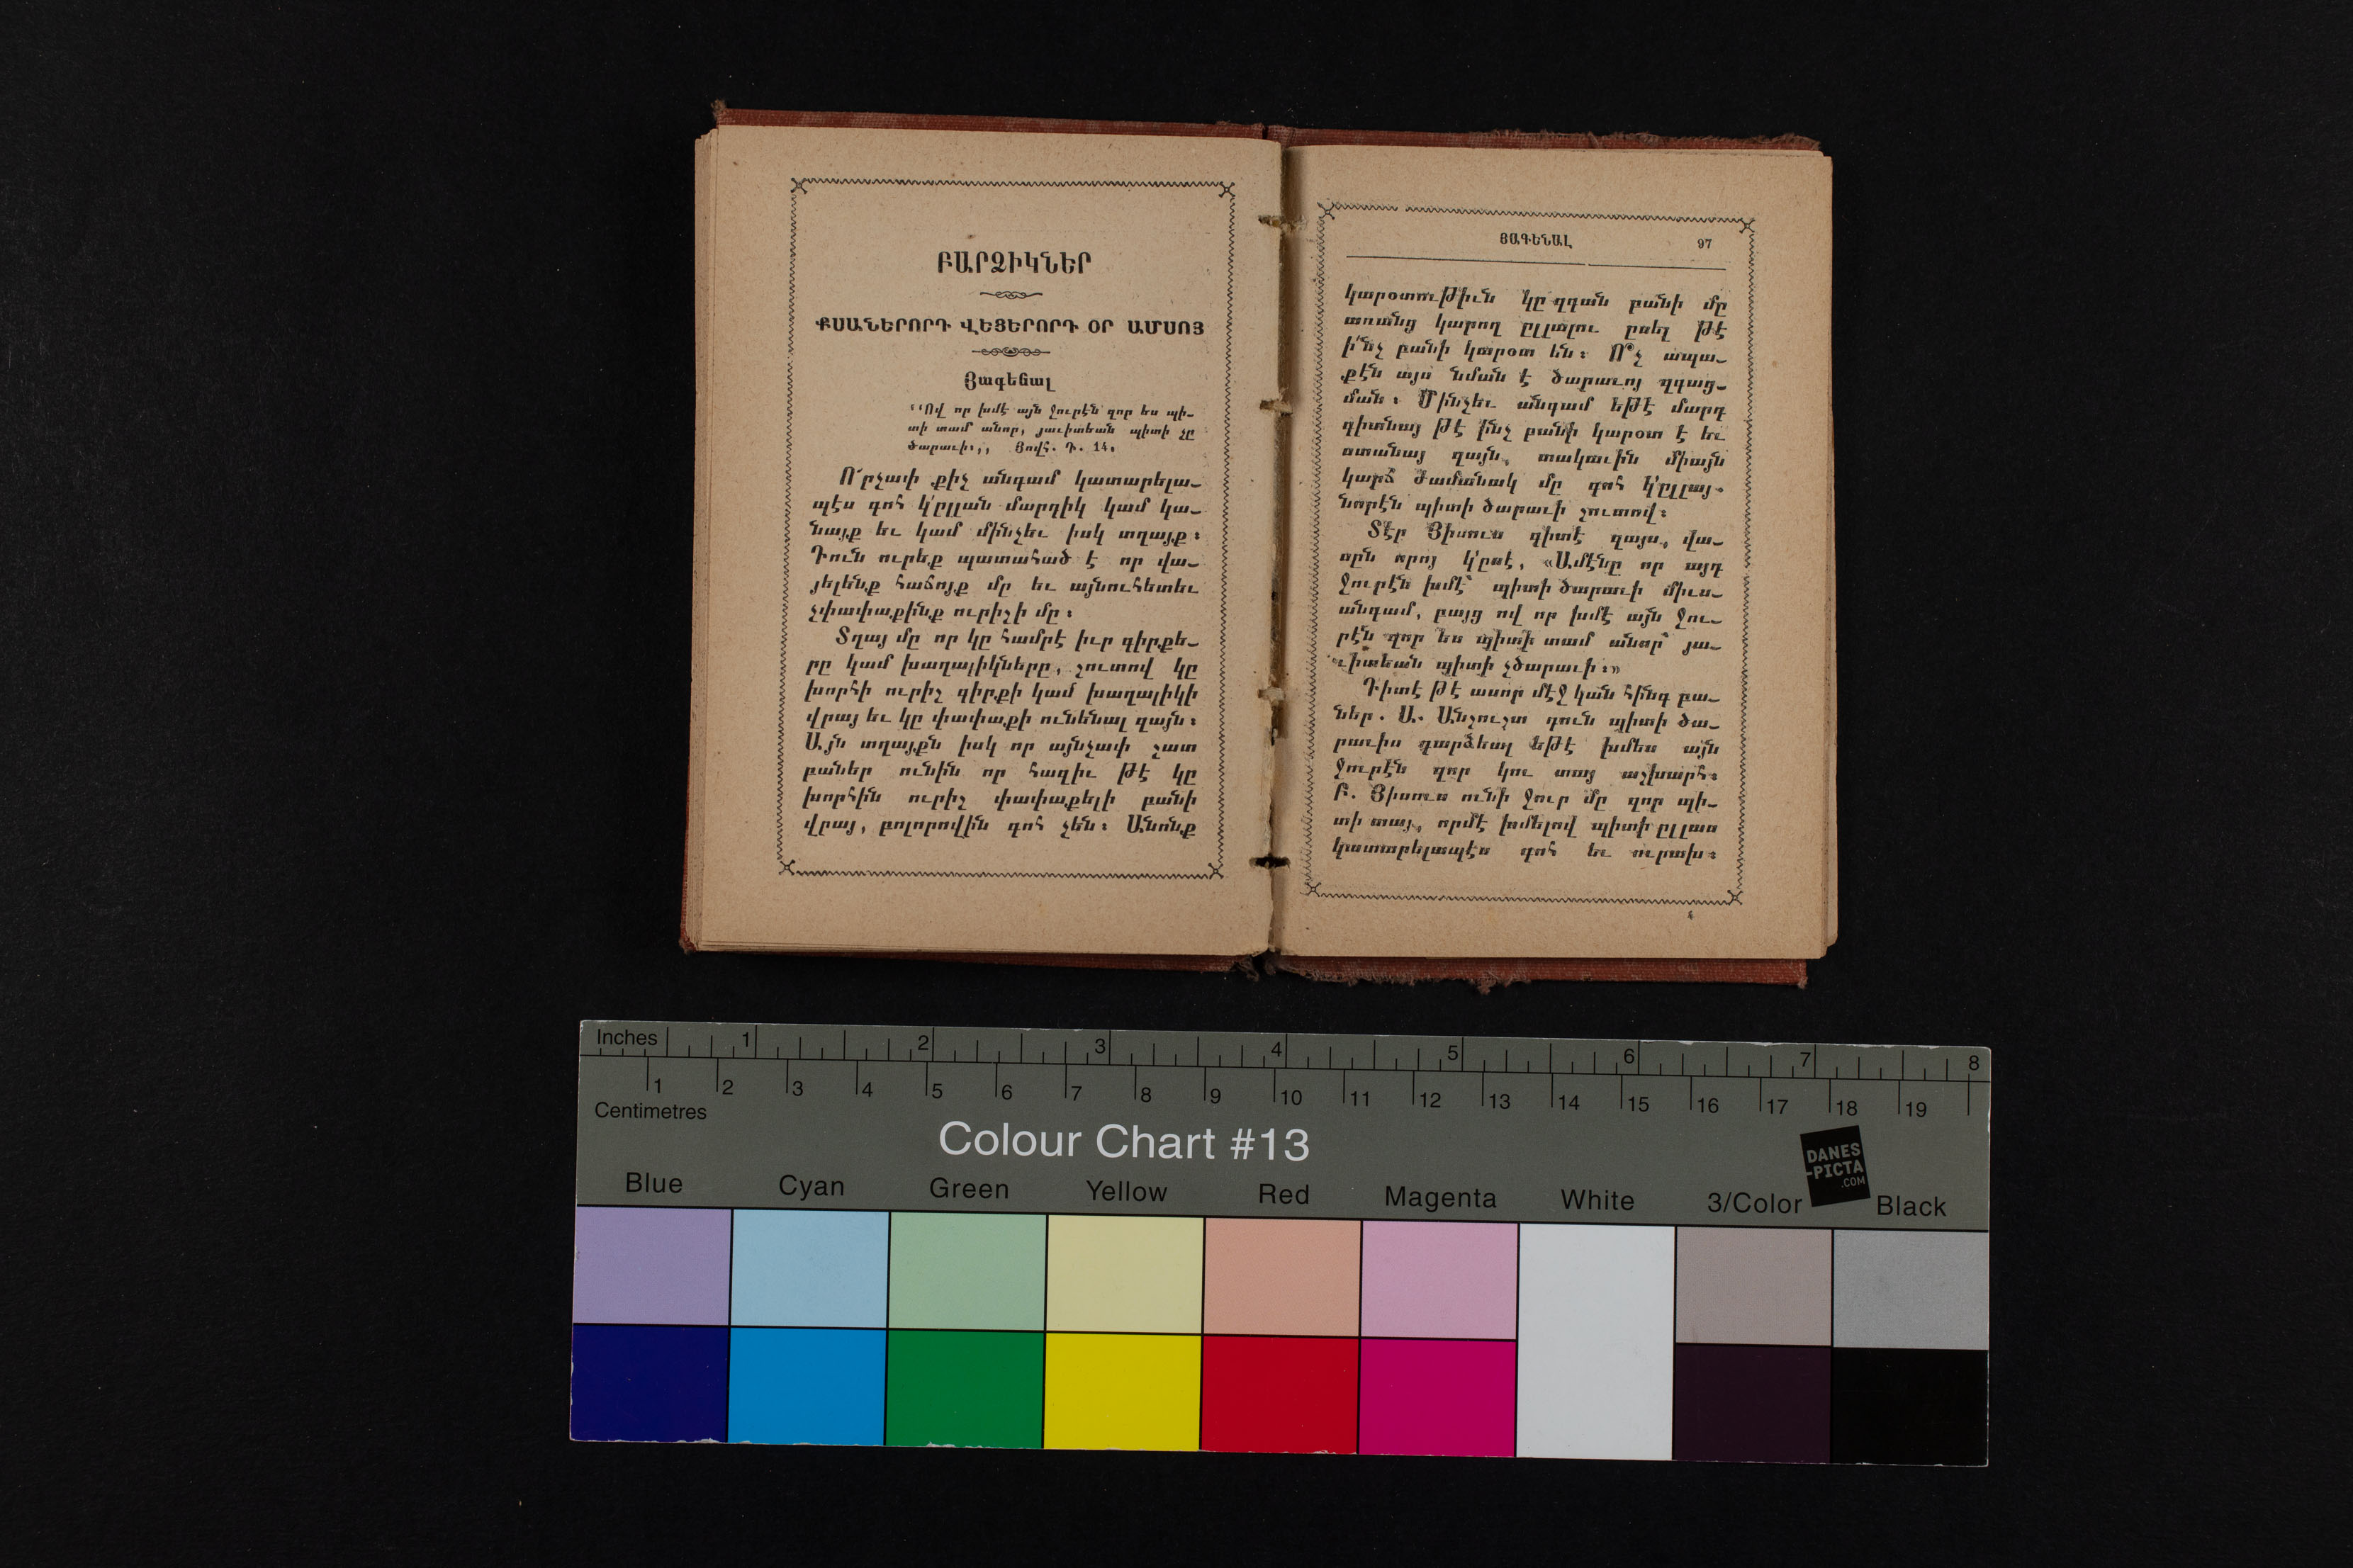 ԲԱՐՁԻԿՆԵՐ
ՔՍԱՆԵՐՈՐԴ ՎԵՑԵՐՈՐԴ ՕՐ ԱՄՍՈՅ
Յագենալ
‘‘Ով որ խմէ այն ջուրէն զոր ես պի-
տի տամ անոր, յաւիտեան պիտի չը
ծարաւի։,, Յովհ. Դ. 14։
Ո՜րչափ քիչ անգամ կատարելա-
պէս գոհ կ՚ըլլան մարդիկ կամ կա-
նայք եւ կամ մինչեւ իսկ տղայք։
Դուն ուրեք պատահած է որ վա-
յելենք հաճոյք մը եւ այնուհետեւ
չփափաքինք ուրիշի մը։
Տղայ մը որ կը համրէ իւր գիրքե-
րը կամ խաղալիկները, շուտով կը
խորհի ուրիշ գիրքի կամ խաղալիկի
վրայ եւ կը փափաքի ունենալ զայն։
Այն տղայքն իսկ որ այնչափ շատ
բաներ ունին որ հազիւ թէ կը
խորհին ուրիշ փափաքելի բանի
վրայ, բոլորովին գոհ չեն։ Անոնք
ՅԱԳԵՆԱԼ 97
կարօտութիւն կը զգան բանի մը
առանց կարող ըլլալու ըսել թէ
ի՛նչ բանի կարօտ են։ Ո՞չ ապա-
քէն այս նման է ծարաւոյ զգաց-
ման։ Մինչեւ անգամ եթէ մարդ
գիտնայ թէ ինչ բանի կարօտ է եւ
ստանայ զայն, տակաւին միայն
կարճ ժամանակ մը գոհ կ՚ըլլայ.
նորէն պիտի ծարաւի շուտով։
Տէր Յիսուս գիտէ զայս, վա-
սըն որոյ կ՚ըսէ, «Ամէնը որ այդ
ջուրէն խմէ՝ պիտի ծարաւի միւս-
անգամ, բայց ով որ խմէ այն ջու-
րէն զոր ես պիտի տամ անոր՝ յա-
ւիտեան պիտի չծարաւի։»
Դիտէ թէ ասոր մէջ կան հինգ բա-
ներ. Ա. Անշուշտ դուն պիտի ծա-
րաւիս դարձեալ եթէ խմես այն
ջուրէն զոր կու տայ աշխարհ։
Բ. Յիսուս ունի ջուր մը զոր պի-
տի տայ, որմէ խմելով պիտի ըլլաս
կատարելապէս գոհ եւ ուրախ։
Inches 1 2 3 4 5 6 7 8
1 2 3 4 5 6 7 8 9 10 11 12 13 14 15 16 17 18 19
Centimetres
Colour Chart #13
DANES
-PICTA
.COM
Blue Cyan Green Yellow Red Magenta White 3/Color Black